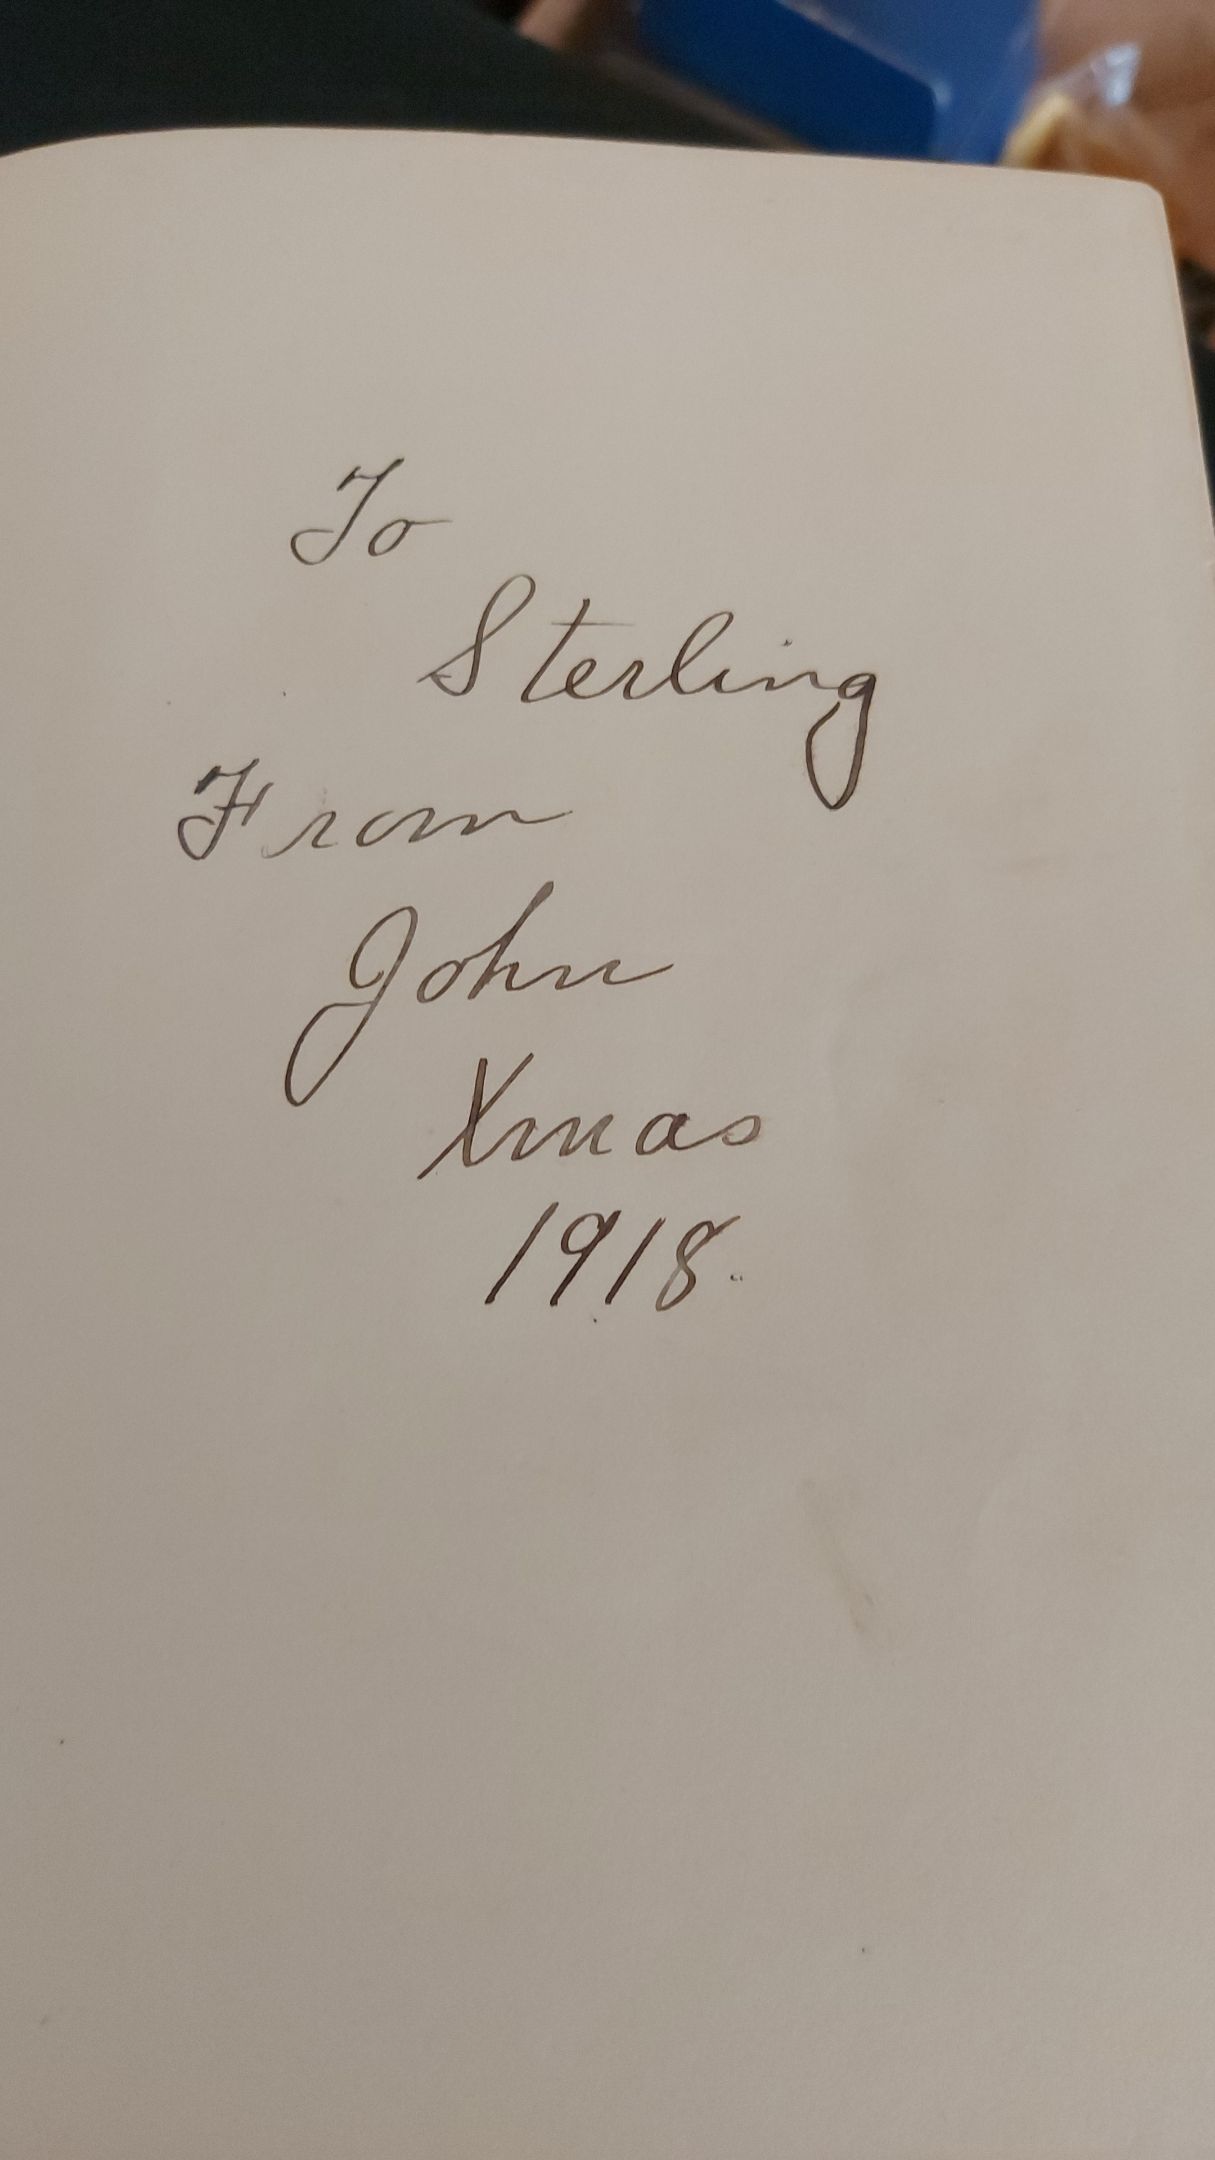 To
Sterling
From
John
Xmas
1918.